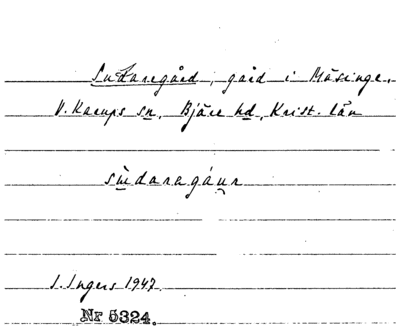 Sudaregård, gård i Måsinge,
V. Karups sn, Bjäre hd, Krist. län
sùdaragáur
I. Ingers 1947.
Nr 5324.